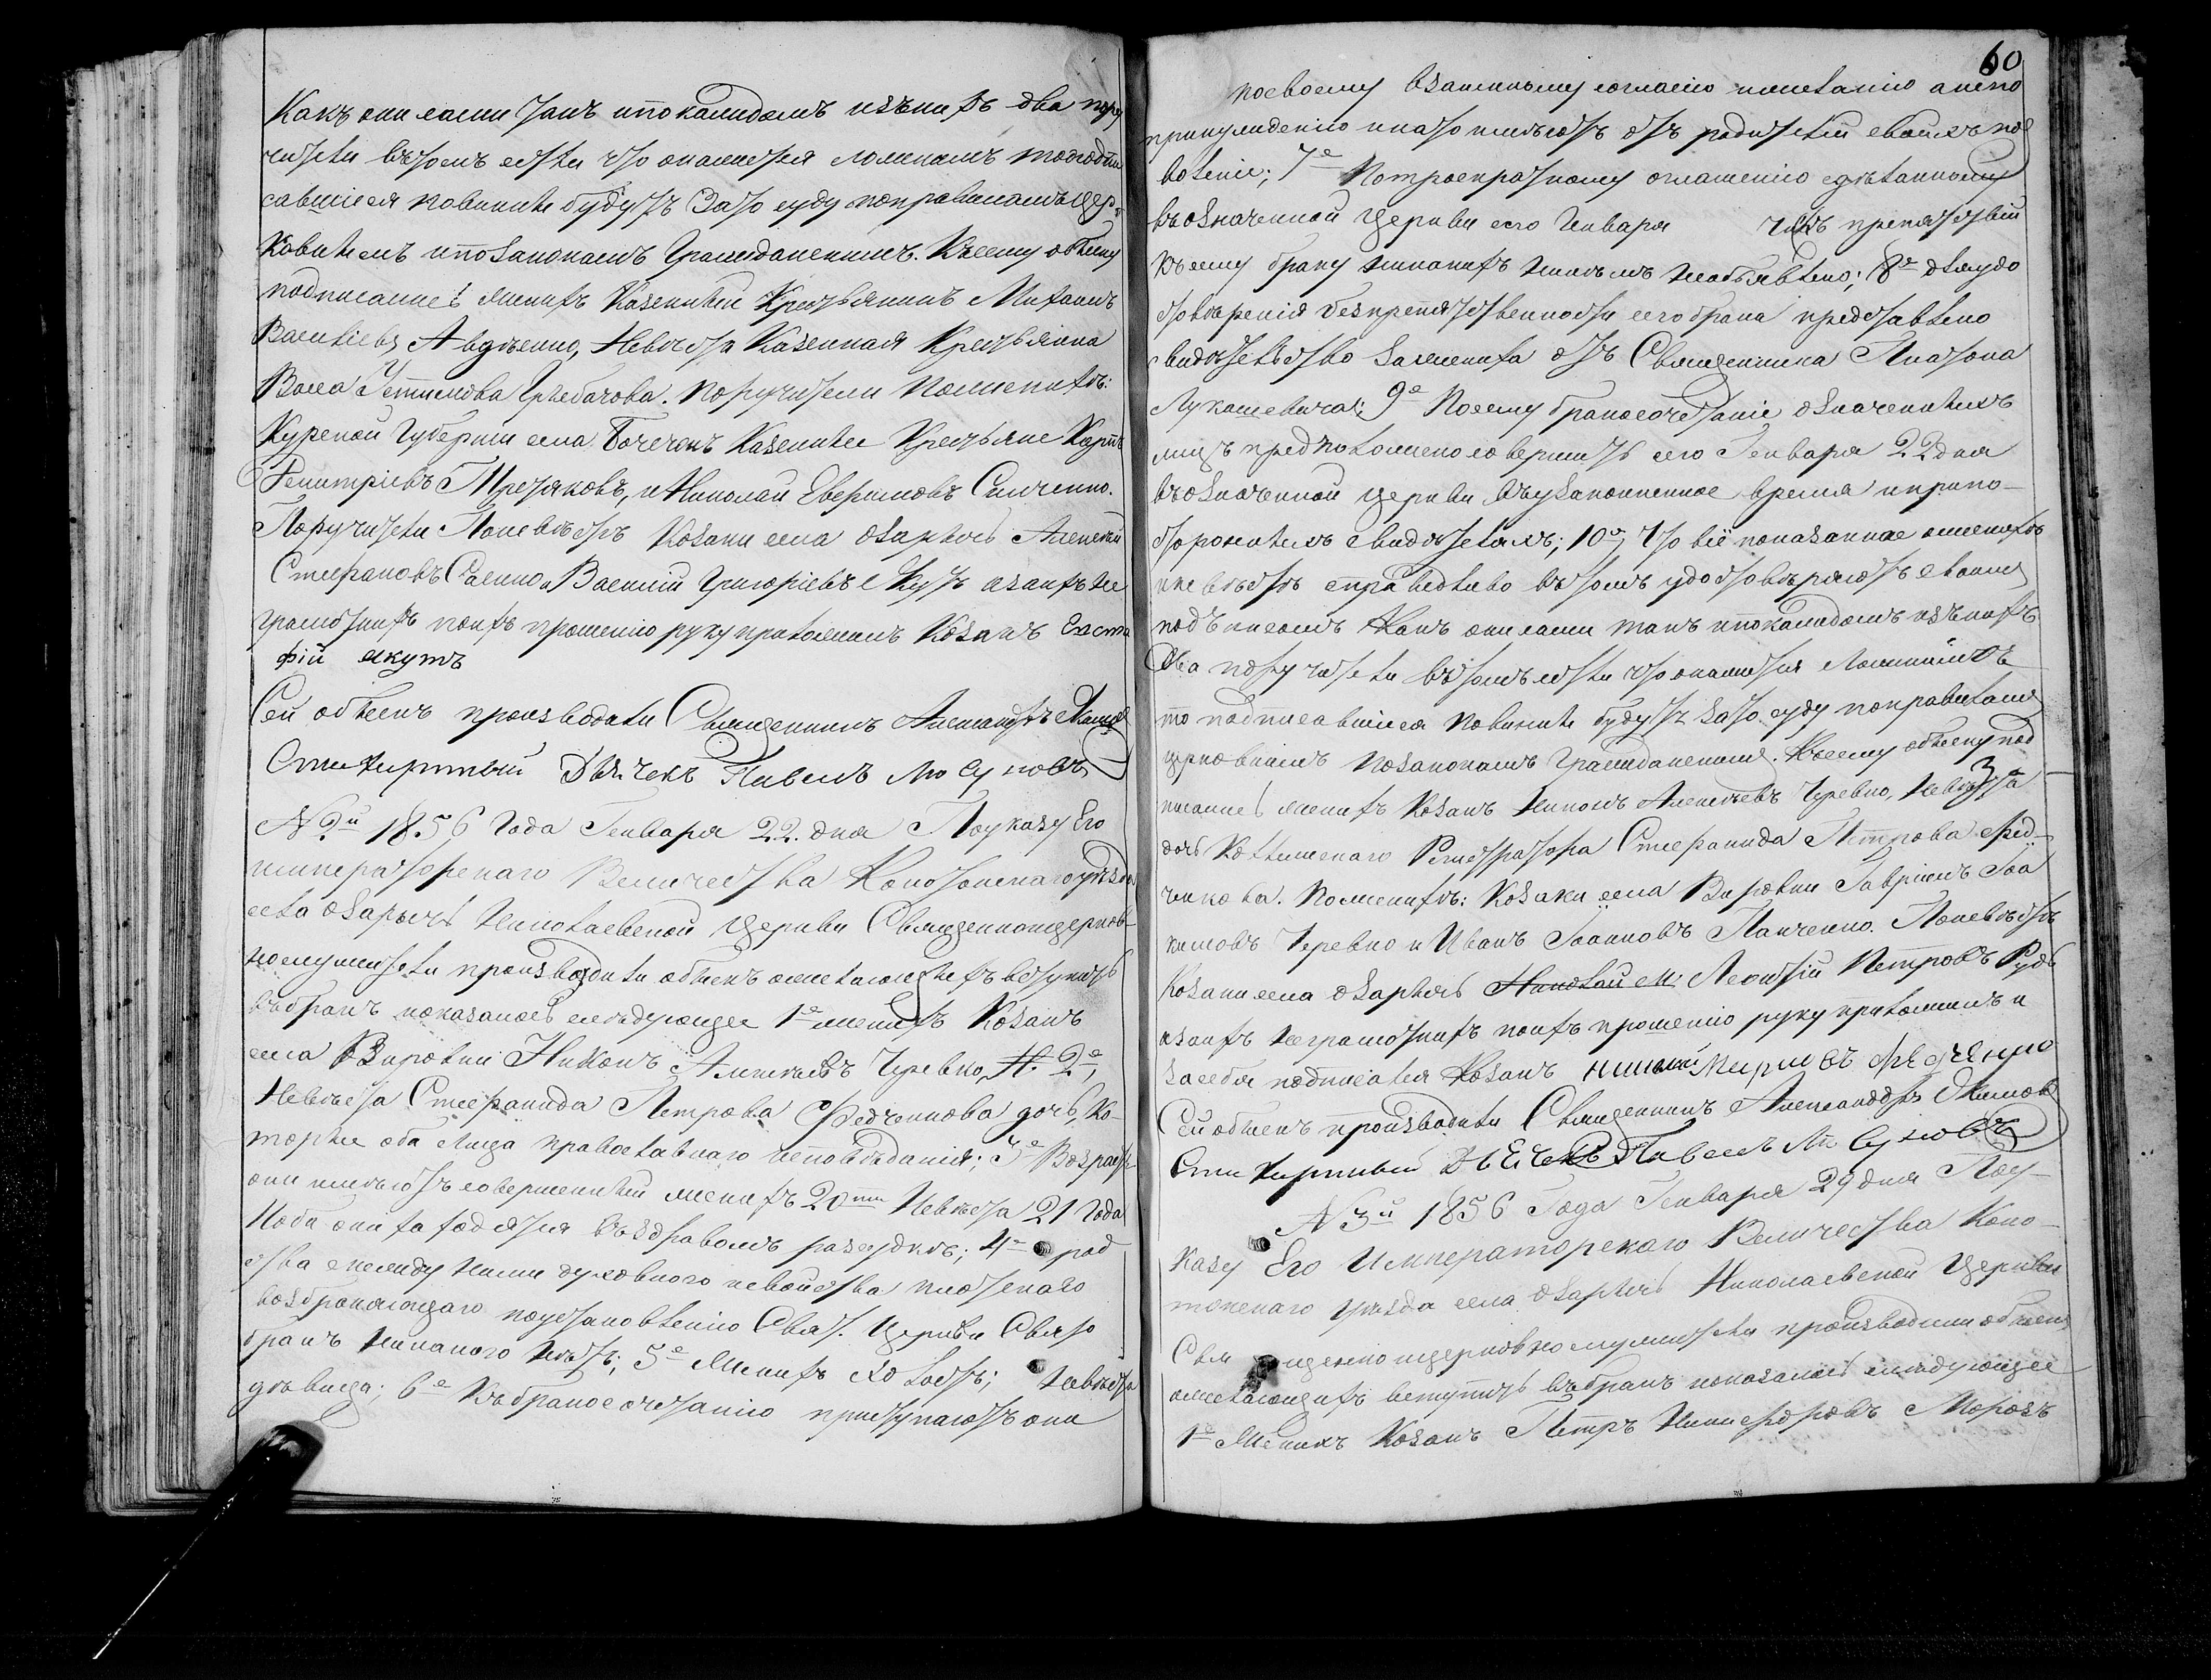 Какъ они сами такъ и по каждомъ изъ нихъ два пору
чители въ томъ если что окажется ложнымъ то подпи
савшіеся повинны будутъ за то суду по правиламъ цер
ковнымъ и по законамъ Гражданскимъ. Къ сему обыску
подписались женихъ Казенный Крестьянинъ
Васильевъ Авдѣенко, Невѣста Казенная Крестьянка
Васса Устимова Грибачова. Поручители по женихѣ:
Курской Губерніи села Бочечекъ Казенные Крестьяне
Димитріевъ Третяковъ, и Николай Савченко.
Поручители по невѣстѣ Козаки села Озарычъ Алексѣй
Стефановъ Саенко и Василій Григоріевъ Якутъ а за ихъ не
грамотныхъ по ихъ прошенію руку приложилъ Козакъ Евста
фій Якутъ
Сей обыскъ производили Священникъ Александръ
Стихирный Дьячекъ Павелъ
N 2й 1856 Года Генваря 22. дня По указу Его
Императорскаго Величества Конотопскаго уѣзда
села Озарычъ Николаевской Церкви Священноцерков
нослужители производили обыскъ о желающихъ вступить
въ бракъ и оказалось слѣдующее 1е женихъ Козакъ
села Вировки Никонъ Алексѣевъ Черевко, 2е,
Невѣста Стефанида Петрова Федченкова дочь, Ко
торые оба лица православнаго исповѣданія; 3е Возрастъ
они имѣютъ совершенный женихъ 20ти Невѣста 21 Года
и оба они находятся въ здравомъ разсудкѣ; 4е род
ства между ними духовнаго и свойства плотскаго
возбраняющаго по установленію Свят. Церкви Свято
бракъ никакого нѣтъ; 5е Женихъ холостъ; Невѣста
дѣвица; 6е Къ бракосочетанію приступаютъ они
60
по своему взаимному согласію и желанію а не по
принужденію и на то имѣютъ отъ родителей своихъ поз
воленіе; 7е По троекратному оглашенію сдѣланному
въ означенной Церкви сего Генваря числъ препятствій
къ сему браку никакихъ никѣмъ необъявлено; 8е Для удо
стовѣренія безпрепятственности сего брака представлено
свидѣтельство за жениха отъ Священника Платона
Лукашевича; 9е По сему бракосочетаніе означенныхъ
лицъ предположено совершить сего Генваря 22 дня
въ означенной Церкви въ узаконенное время и при по
стороннихъ свидѣтеляхъ; 10е, Что всё показанное о женихѣ
и невѣстѣ справедливо въ томъ удостовѣряютъ своимъ
подписомъ Какъ они сами такъ и по каждомъ изъ нихъ
два поручители въ томъ если что окажется ложнымъ
то подписавшіеся повинны будутъ за то суду по правиламъ
церковнымъ и по законамъ Гражданскимъ. Къ сему обыску под
писались женихъ Козакъ Никонъ Алексѣевъ Черевко, Невѣста
дочь Коллежскаго Регистратора Стефанида Петрова Фед
ченкова. По женихѣ: Козаки села Вировки Гавріилъ Іоа
кимовъ Черевко и Иванъ Іоанновъ Панченко. По невѣстѣ
Козаки села Озарычъ Леонтій Петровъ Рудь
а за ихъ неграмотныхъ по ихъ прошенію руку приложилъ и
за себя подписался Козакъ
Сей обыскъ производили Священникъ Александръ
Стихирный Дьячекъ Павелъ
N 3й 1856 Года Генваря 29 дня По у
казу Его Императорскаго Величества Коно
топскаго уѣзда села Озарычъ Николаевской Церкви
Священноцерковнослужители производили обыскъ
о желающихъ вступить въ бракъ и оказалось слѣдующее
1е Женихъ Козакъ Петръ Никифоровъ Морозъ